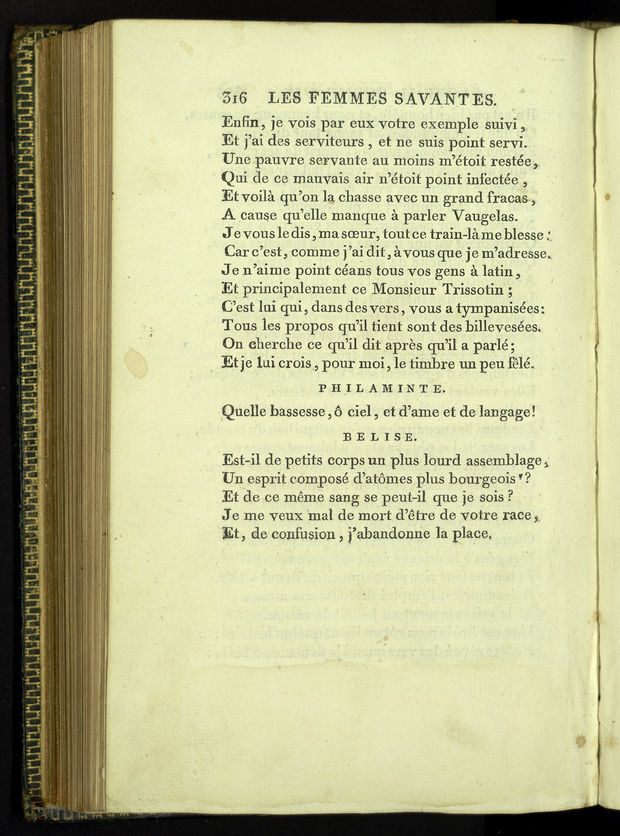 316 LES FEMMES SAVANTES.
Enfin, je vois par eux votre exemple suivi,
Et j'ai des serviteurs, et ne suis point servi.
Une pauvre servante au moins m'étoit restée,
Qui de ce mauvais air n'étoit point infectée,
Et voilà qu'on la chasse avec un grand fracas,
A cause qu'elle manque à parler Vaugelas.
Je vous le dis, ma sœur, tout ce train-là me blesse:
Car c'est, comme j'ai dit, à vous que je m'adresse.
Je n'aime point céans tous vos gens à latin,
Et principalement ce Monsieur Trissotin;
C'est lui qui, dans des vers, vous a tympanisées:
Tous les propos qu'il tient sont des billevesées.
On cherche ce qu'il dit après qu'il a parlé;
Et je lui crois, pour moi, le timbre un peu fêlé.
PHILAMINTE.
Quelle bassesse, ô ciel, et d'ame et de langage!
BELISE.
Est-il de petits corps un plus lourd assemblage,
Un esprit composé d'atômes plus bourgeois?
Et de ce même sang se peut-il que je sois?
Je me veux mal de mort d'être de votre race,
Et, de confusion, j'abandonne la place.